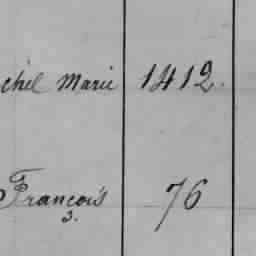 chel Marie 1412.
François 76
3.